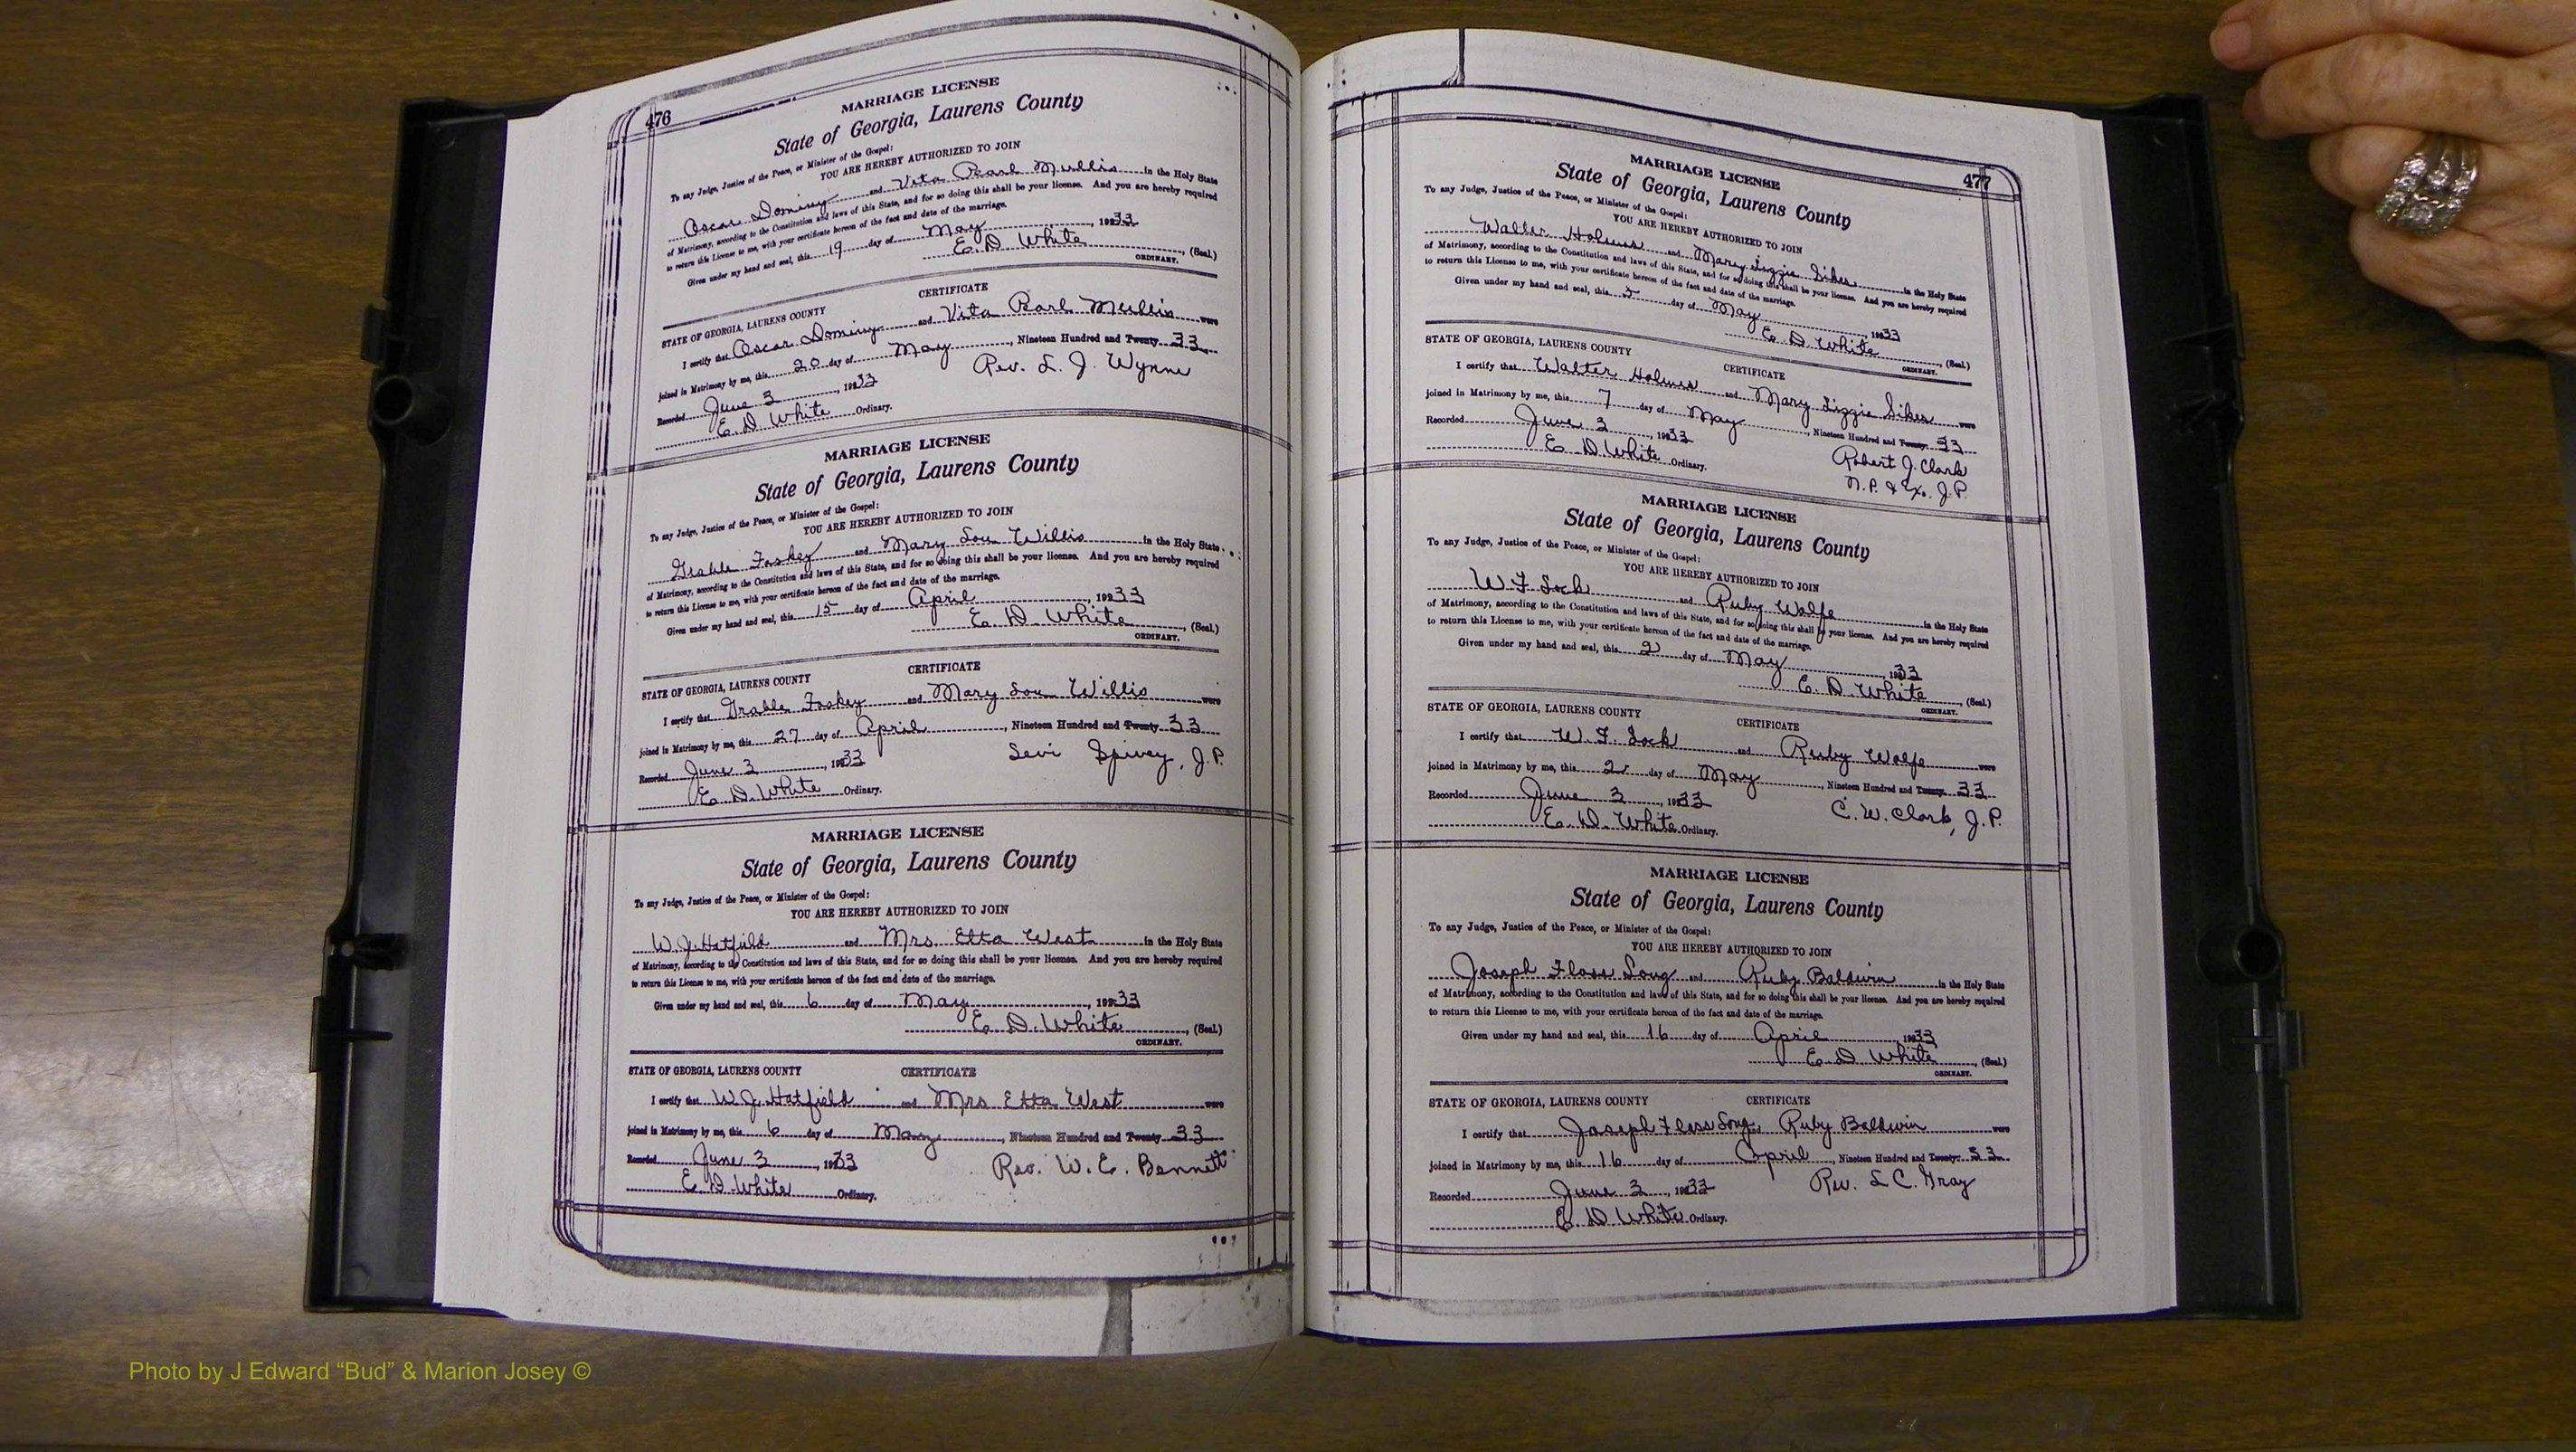 476
MARRIAGE LICENSE
State of Georgia, Laurens County
To any Judge, Justice of the Peace, or Minister of the Gospel:
YOU ARE HEREBY AUTHORIZED TO JOIN
Oscar Dominy and Vita Pearl Mullis in the Holy State
of Matrimony, according to the Constitution and laws of this State, and for so doing this shall be your license. And you are hereby required
to return this License to me, with your certificate hereon of the fact and date of the marriage.
Given under my hand and seal, this 19 day of May, 1933
E. D. White, (Seal.)
ORDINARY.
CERTIFICATE
STATE OF GEORGIA, LAURENS COUNTY
I certify that Oscar Dominy and Vita Parl Mullis were
joined in Matrimony by me, this 20 day of May, Nineteen Hundred and Twenty 33
Rev. L. J. Wynne
Recorded June 3, 1933
E. D. White Ordinary.
MARRIAGE LICENSE
State of Georgia, Laurens County
To any Judge, Justice of the Peace, or Minister of the Gospel:
YOU ARE HEREBY AUTHORIZED TO JOIN
Foskey and Mary Lou Willis in the Holy State
of Matrimony, according to the Constitution and laws of this State, and for so doing this shall be your license. And you are hereby required
to return this License to me, with your certificate hereon of the fact and date of the marriage.
Given under my hand and seal, this 15 day of April, 1933
E. D. White, (Seal.)
ORDINARY.
CERTIFICATE
STATE OF GEORGIA, LAURENS COUNTY
I certify that Foskey and Mary Lou Willis were
joined in Matrimony by me, this 27 day of April, Nineteen Hundred and Twenty 33
Levi Spivey, J.P.
Recorded June 3, 1933
E. D. White Ordinary.
MARRIAGE LICENSE
State of Georgia, Laurens County
To any Judge, Justice of the Peace, or Minister of the Gospel:
YOU ARE HEREBY AUTHORIZED TO JOIN
W. J. Hatfield and Mrs. Etta West in the Holy State
of Matrimony, according to the Constitution and laws of this State, and for so doing this shall be your license. And you are hereby required
to return this License to me, with your certificate hereon of the fact and date of the marriage.
Given under my hand and seal, this 6 day of May, 1933
E. D. White, (Seal.)
ORDINARY.
STATE OF GEORGIA, LAURENS COUNTY CERTIFICATE
I certify that W. J. Hatfield and Mrs Etta West were
joined in Matrimony by me, this 6 day of May, Nineteen Hundred and Twenty 33
Recorded June 3, 1933 Rev. W. E. Bennett
E. D. White Ordinary.
477
MARRIAGE LICENSE
State of Georgia, Laurens County
To any Judge, Justice of the Peace, or Minister of the Gospel:
YOU ARE HEREBY AUTHORIZED TO JOIN
Walter Holmes and Mary Lizzie Sikes in the Holy State
of Matrimony, according to the Constitution and laws of this State, and for so doing this shall be your license. And you are hereby required
to return this License to me, with your certificate hereon of the fact and date of the marriage.
Given under my hand and seal, this 5 day of May, 1933
E. D. White, (Seal.)
ORDINARY.
STATE OF GEORGIA, LAURENS COUNTY CERTIFICATE
I certify that Walter Holmes and Mary Lizzie Sikes were
joined in Matrimony by me, this 7 day of May, Nineteen Hundred and Twenty 33
Recorded June 3, 1933 Robert J. Clark
E. D. White Ordinary. N. P. & Ex. J. P.
MARRIAGE LICENSE
State of Georgia, Laurens County
To any Judge, Justice of the Peace, or Minister of the Gospel:
YOU ARE HEREBY AUTHORIZED TO JOIN
W. F. Lock and Ruby Wolfe in the Holy State
of Matrimony, according to the Constitution and laws of this State, and for so doing this shall be your license. And you are hereby required
to return this License to me, with your certificate hereon of the fact and date of the marriage.
Given under my hand and seal, this 2 day of May, 1933
E. D. White, (Seal.)
ORDINARY.
STATE OF GEORGIA, LAURENS COUNTY CERTIFICATE
I certify that W. F. Lock and Ruby Wolfe were
joined in Matrimony by me, this day of May, Nineteen Hundred and Twenty 33
Recorded June 3, 1933 C. W. Clark, J. P.
E. D. White Ordinary.
MARRIAGE LICENSE
State of Georgia, Laurens County
To any Judge, Justice of the Peace, or Minister of the Gospel:
YOU ARE HEREBY AUTHORIZED TO JOIN
Joseph Floss Long and Ruby Baldwin in the Holy State
of Matrimony, according to the Constitution and laws of this State, and for so doing this shall be your license. And you are hereby required
to return this License to me, with your certificate hereon of the fact and date of the marriage.
Given under my hand and seal, this 16 day of April, 1933
E. D. White, (Seal.)
ORDINARY.
STATE OF GEORGIA, LAURENS COUNTY CERTIFICATE
I certify that Joseph Floss Long, Ruby Baldwin were
joined in Matrimony by me, this 16 day of April, Nineteen Hundred and Twenty 33
Recorded June 3, 1933 Rev. L C. Gray
E. D. White Ordinary.
Photo by J Edward “Bud” & Marion Josey ©